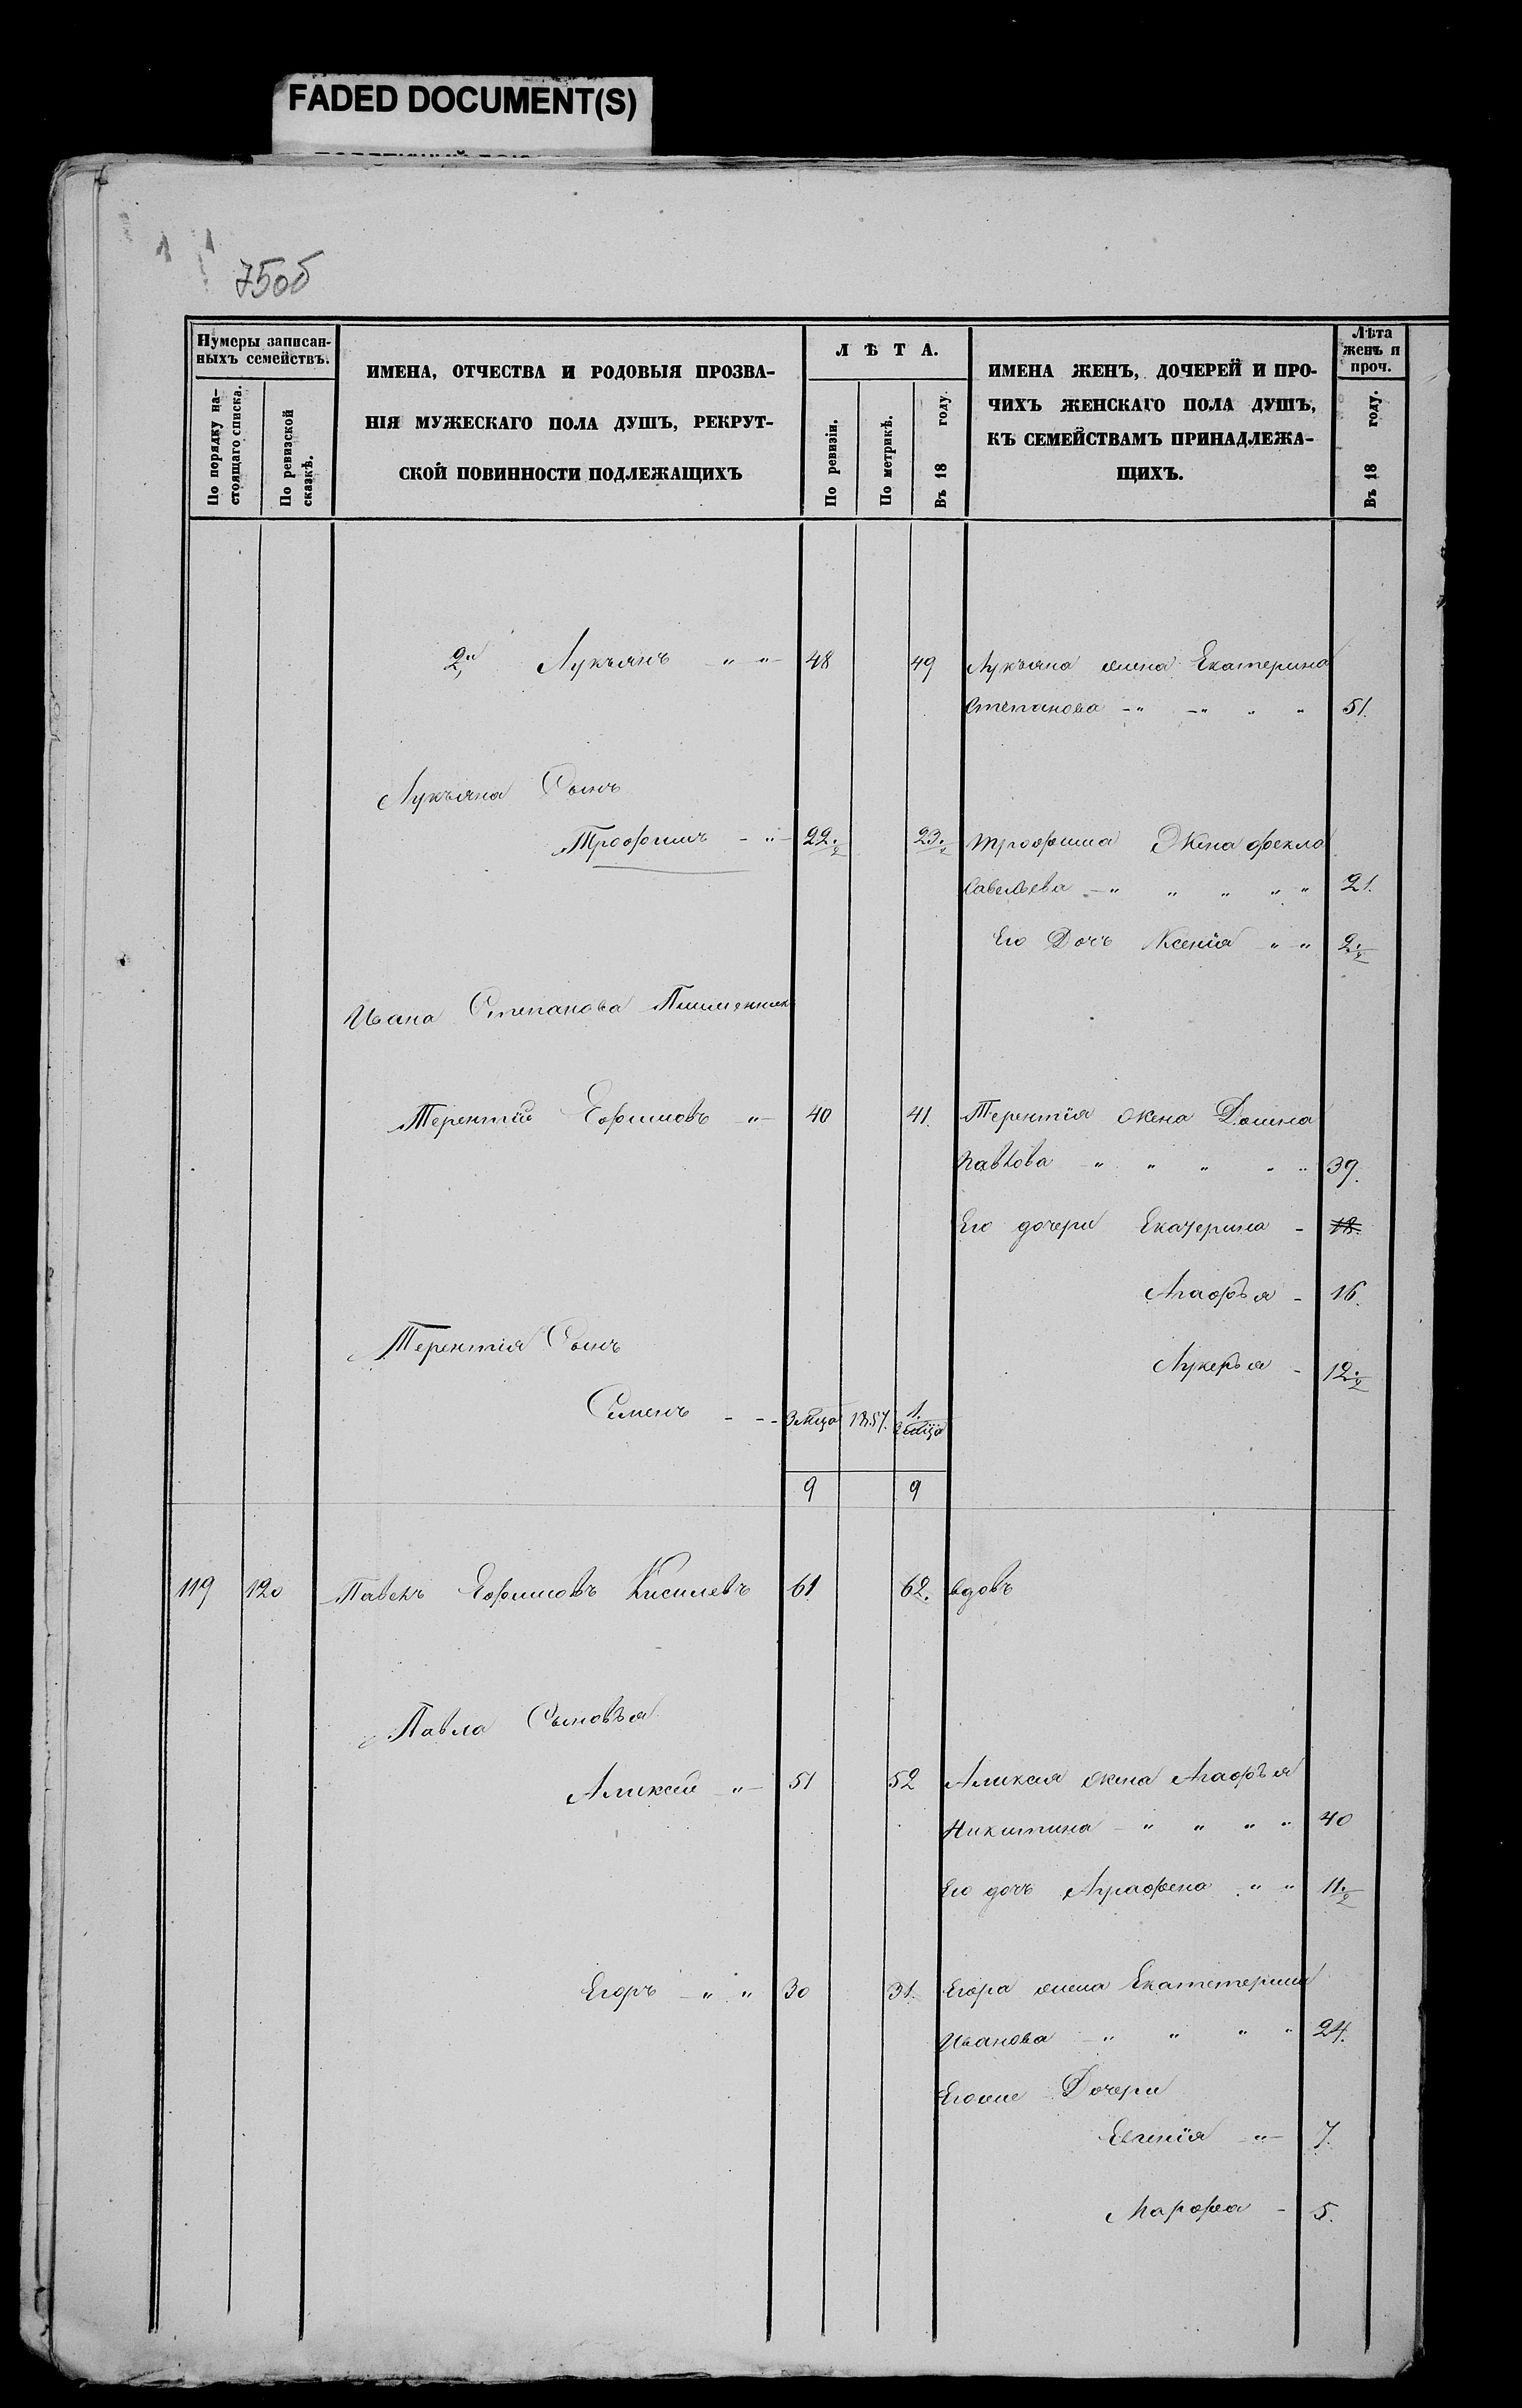 FADED DOCUMENT(S)
75об
Нумеры записан-
ныхъ семействъ.
По порядку на-
стоящаго списка.
По ревизской
сказкѣ.
ИМЕНА, ОТЧЕСТВА И РОДОВЫЯ ПРОЗВА-
НІЯ МУЖЕСКАГО ПОЛА ДУШЪ, РЕКРУТ-
СКОЙ ПОВИННОСТИ ПОДЛЕЖАЩИХЪ
ЛѢТА.
По ревизіи.
По метрикѣ.
Въ 18 году.
ИМЕНА ЖЕНЪ, ДОЧЕРЕЙ И ПРО-
ЧИХЪ ЖЕНСКАГО ПОЛА ДУШЪ,
КЪ СЕМЕЙСТВАМЪ ПРИНАДЛЕЖА-
ЩИХЪ.
Лѣта
женъ и
проч.
Въ 18 году.
2й Лукъянъ " " 48 49 Лукъяна жена Екатерина
Степанова " " " " 51.
Лукъяна Сынъ
Трофимъ - " 22.½ 23.½ Трофима Жена Фекла
Савельева " " " " " 21.
Его Дочь Ксенія " " 2.½
Ивана Степанова Племянникъ
Терентій Ефимовъ " 40 41. Терентія жена Домна
Павлова " " " " " 39.
Его дочери Екатерина - 18.
Агафья - 16.
Терентія Сынъ
Лукерья - 12.½
Сименъ - - - 3 мѣца 1857. 1.
9 9
119 120 Павелъ Ефимовъ Кисилевъ 61 62. вдовъ
Павла Сыновья
Аликсей " 51 52 Аликсея жена Агафья
Никитина " " " " 40
Его дочь Аграфена " " 11.½
Егоръ " " 30 31. Егора жена Екаттерина
Иванова " " " " 24.
Егоже Дочери
Евгенія " 7.
Марфа - 5.